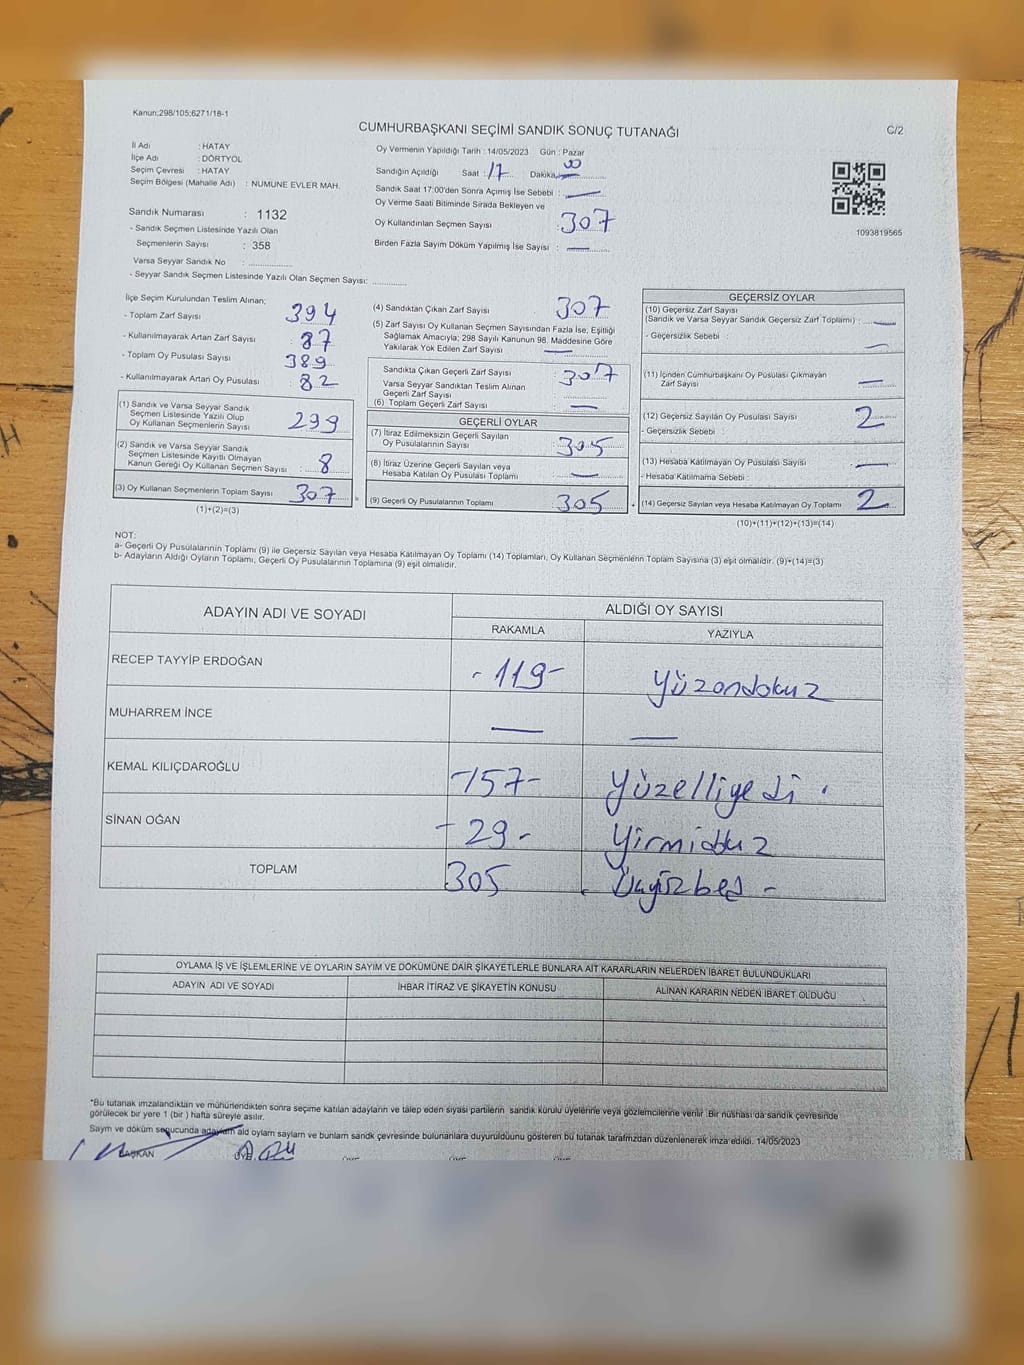 Kanun:298/105;6271/18-1
CUMHURBAŞKANI SEÇİMİ SANDIK SONUÇ TUTANAĞI
C/2
İl Adı : HATAY
İlçe Adı : DÖRTYOL
Seçim Çevresi : HATAY
Seçim Bölgesi (Mahalle Adı) : NUMUNE EVLER MAH.
Sandık Numarası : 1132
- Sandık Seçmen Listesinde Yazılı Olan
Seçmenlerin Sayısı : 358
Varsa Seyyar Sandık No :
- Seyyar Sandık Seçmen Listesinde Yazılı Olan Seçmen Sayısı:
Oy Vermenin Yapıldığı Tarih : 14/05/2023 Gün : Pazar
Sandığın Açıldığı Saat : 17 Dakika: 00
Sandık Saat 17:00'den Sonra Açımış İse Sebebi : —
Oy Verme Saati Bitiminde Sırada Bekleyen ve
Oy Kullandırılan Seçmen Sayısı : 307
Birden Fazla Sayım Döküm Yapılmış İse Sayısı : —
1093819565
İlçe Seçim Kurulundan Teslim Alınan;
- Toplam Zarf Sayısı : 394
- Kullanılmayarak Artan Zarf Sayısı : 87
- Toplam Oy Pusulası Sayısı : 389
- Kullanılmayarak Artan Oy Pusulası : 82
(1) Sandık ve Varsa Seyyar Sandık
Seçmen Listesinde Yazılı Olup
Oy Kullanan Seçmenlerin Sayısı : 299
(2) Sandık ve Varsa Seyyar Sandık
Seçmen Listesinde Kayıtlı Olmayan
Kanun Gereği Oy Kullanan Seçmen Sayısı : 8
(3) Oy Kullanan Seçmenlerin Toplam Sayısı : 307
(1)+(2)=(3)
(4) Sandıktan Çıkan Zarf Sayısı : 307
(5) Zarf Sayısı Oy Kullanan Seçmen Sayısından Fazla İse, Eşitliği
Sağlamak Amacıyla; 298 Sayılı Kanunun 98. Maddesine Göre
Yakılarak Yok Edilen Zarf Sayısı : —
Sandıkta Çıkan Geçerli Zarf Sayısı : 307
Varsa Seyyar Sandıktan Teslim Alınan
Geçerli Zarf Sayısı :
(6) Toplam Geçerli Zarf Sayısı : —
GEÇERLİ OYLAR
(7) İtiraz Edilmeksizin Geçerli Sayılan
Oy Pusulalarının Sayısı : 305
(8) İtiraz Üzerine Geçerli Sayılan veya
Hesaba Katılan Oy Pusulası Toplamı : —
(9) Geçerli Oy Pusulalarının Toplamı : 305
GEÇERSİZ OYLAR
(10) Geçersiz Zarf Sayısı
(Sandık ve Varsa Seyyar Sandık Geçersiz Zarf Toplamı) : —
- Geçersizlik Sebebi : —
(11) İçinden Cumhurbaşkanı Oy Pusulası Çıkmayan
Zarf Sayısı : —
(12) Geçersiz Sayılan Oy Pusulası Sayısı : 2
- Geçersizlik Sebebi :
(13) Hesaba Katılmayan Oy Pusulası Sayısı : —
- Hesaba Katılmama Sebebi :
(14) Geçersiz Sayılan veya Hesaba Katılmayan Oy Toplamı : 2
(10)+(11)+(12)+(13)=(14)
NOT:
a- Geçerli Oy Pusulalarının Toplamı (9) ile Geçersiz Sayılan veya Hesaba Katılmayan Oy Toplamı (14) Toplamları, Oy Kullanan Seçmenlerin Toplam Sayısına (3) eşit olmalıdır. (9)+(14)=(3)
b- Adayların Aldığı Oyların Toplamı, Geçerli Oy Pusulalarının Toplamına (9) eşit olmalıdır.
ADAYIN ADI VE SOYADI
ALDIĞI OY SAYISI
RAKAMLA YAZIYLA
RECEP TAYYİP ERDOĞAN -119- Yüzondokuz
MUHARREM İNCE — —
KEMAL KILIÇDAROĞLU -157- Yüzelliyedi.
SİNAN OĞAN -29-
TOPLAM 305
OYLAMA İŞ VE İŞLEMLERİNE VE OYLARIN SAYIM VE DÖKÜMÜNE DAİR ŞİKAYETLERLE BUNLARA AİT KARARLARIN NELERDEN İBARET BULUNDUKLARI
ADAYIN ADI VE SOYADI İHBAR İTİRAZ VE ŞİKAYETİN KONUSU ALINAN KARARIN NEDEN İBARET OLDUĞU
*Bu tutanak imzalandıktan ve mühürlendikten sonra seçime katılan adayların ve talep eden siyasi partilerin sandık kurulu üyelerine veya gözlemcilerine verilir. Bir nüshası da sandık çevresinde
görülecek bir yere 1 (bir ) hafta süreyle asılır.
Sayım ve döküm sonucunda ald oyların sayları ve bunların sandk çevresinde bulunanlara duyurulduunu gösteren bu tutanak tarafmzdan düzenlenerek imza edildi. 14/05/2023
BAŞKAN